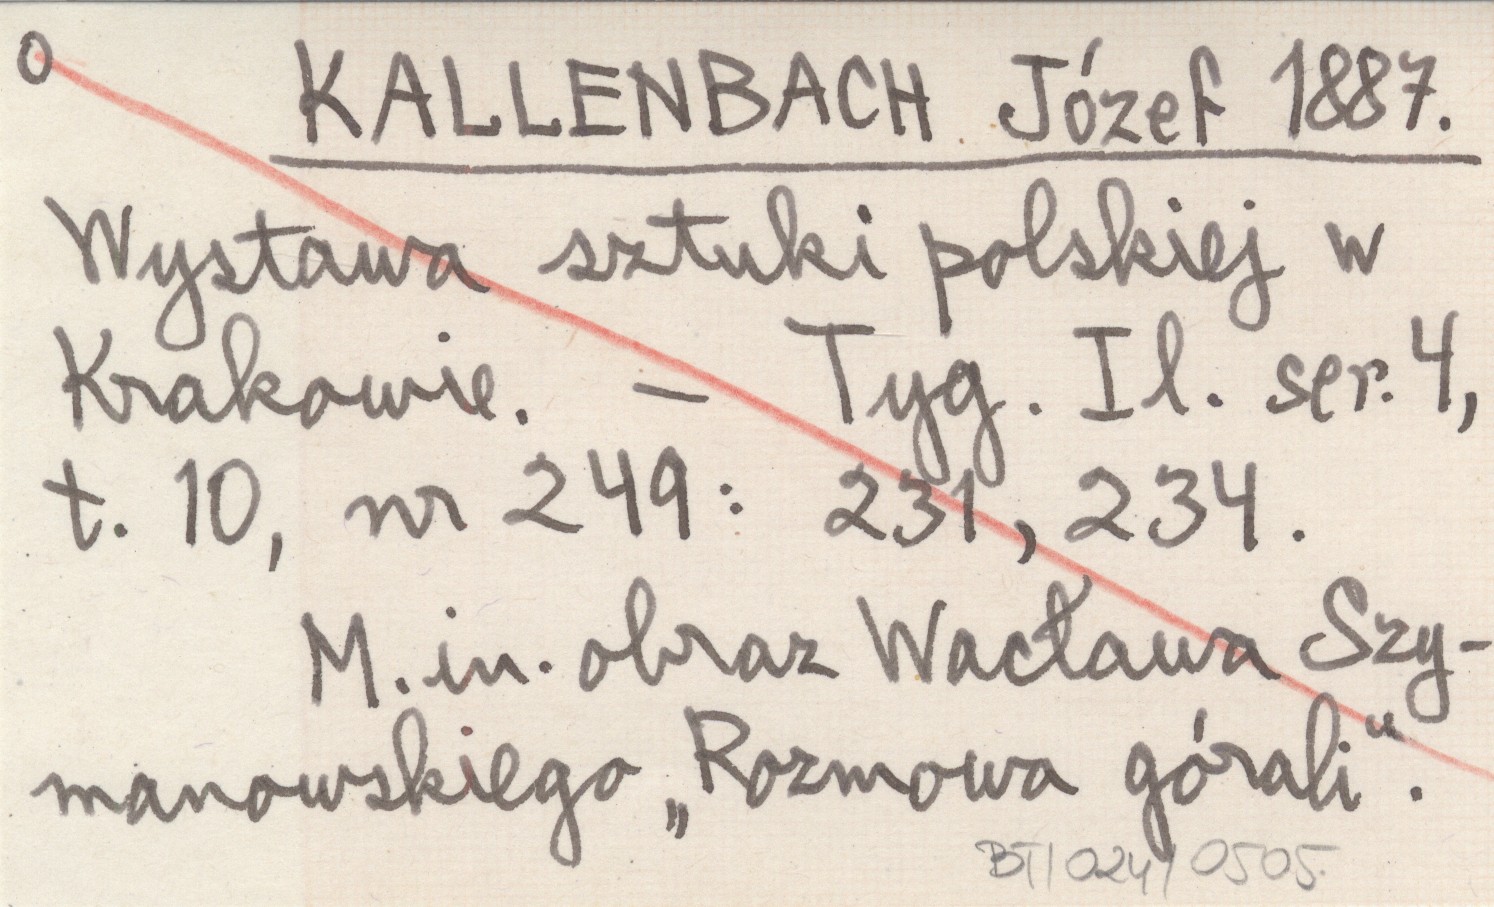 O KALLENBACH Józef 1887.
Wystawa sztuki polskiej w
Krakowie. – Tyg. Il. ser. 4,
t. 10, nr 249: 231, 234.
M. in. obraz Wacława Szy-
manowskiego „Rozmowa górali".
BT/024/0505.